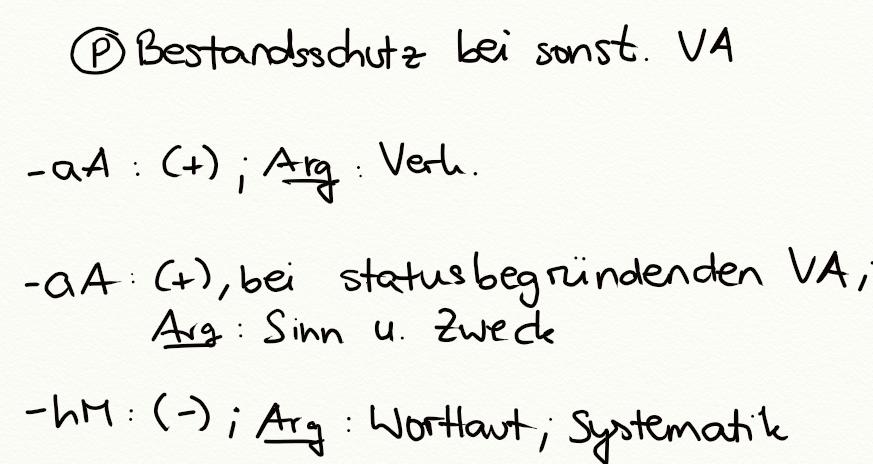 Ⓟ Bestandsschutz bei sonst. VA
- aA : (+) ; Arg : Verh.
- aA : (+), bei statusbegründenden VA,
Arg : Sinn u. Zweck
- hM : (-) ; Arg : Wortlaut ; Systematik